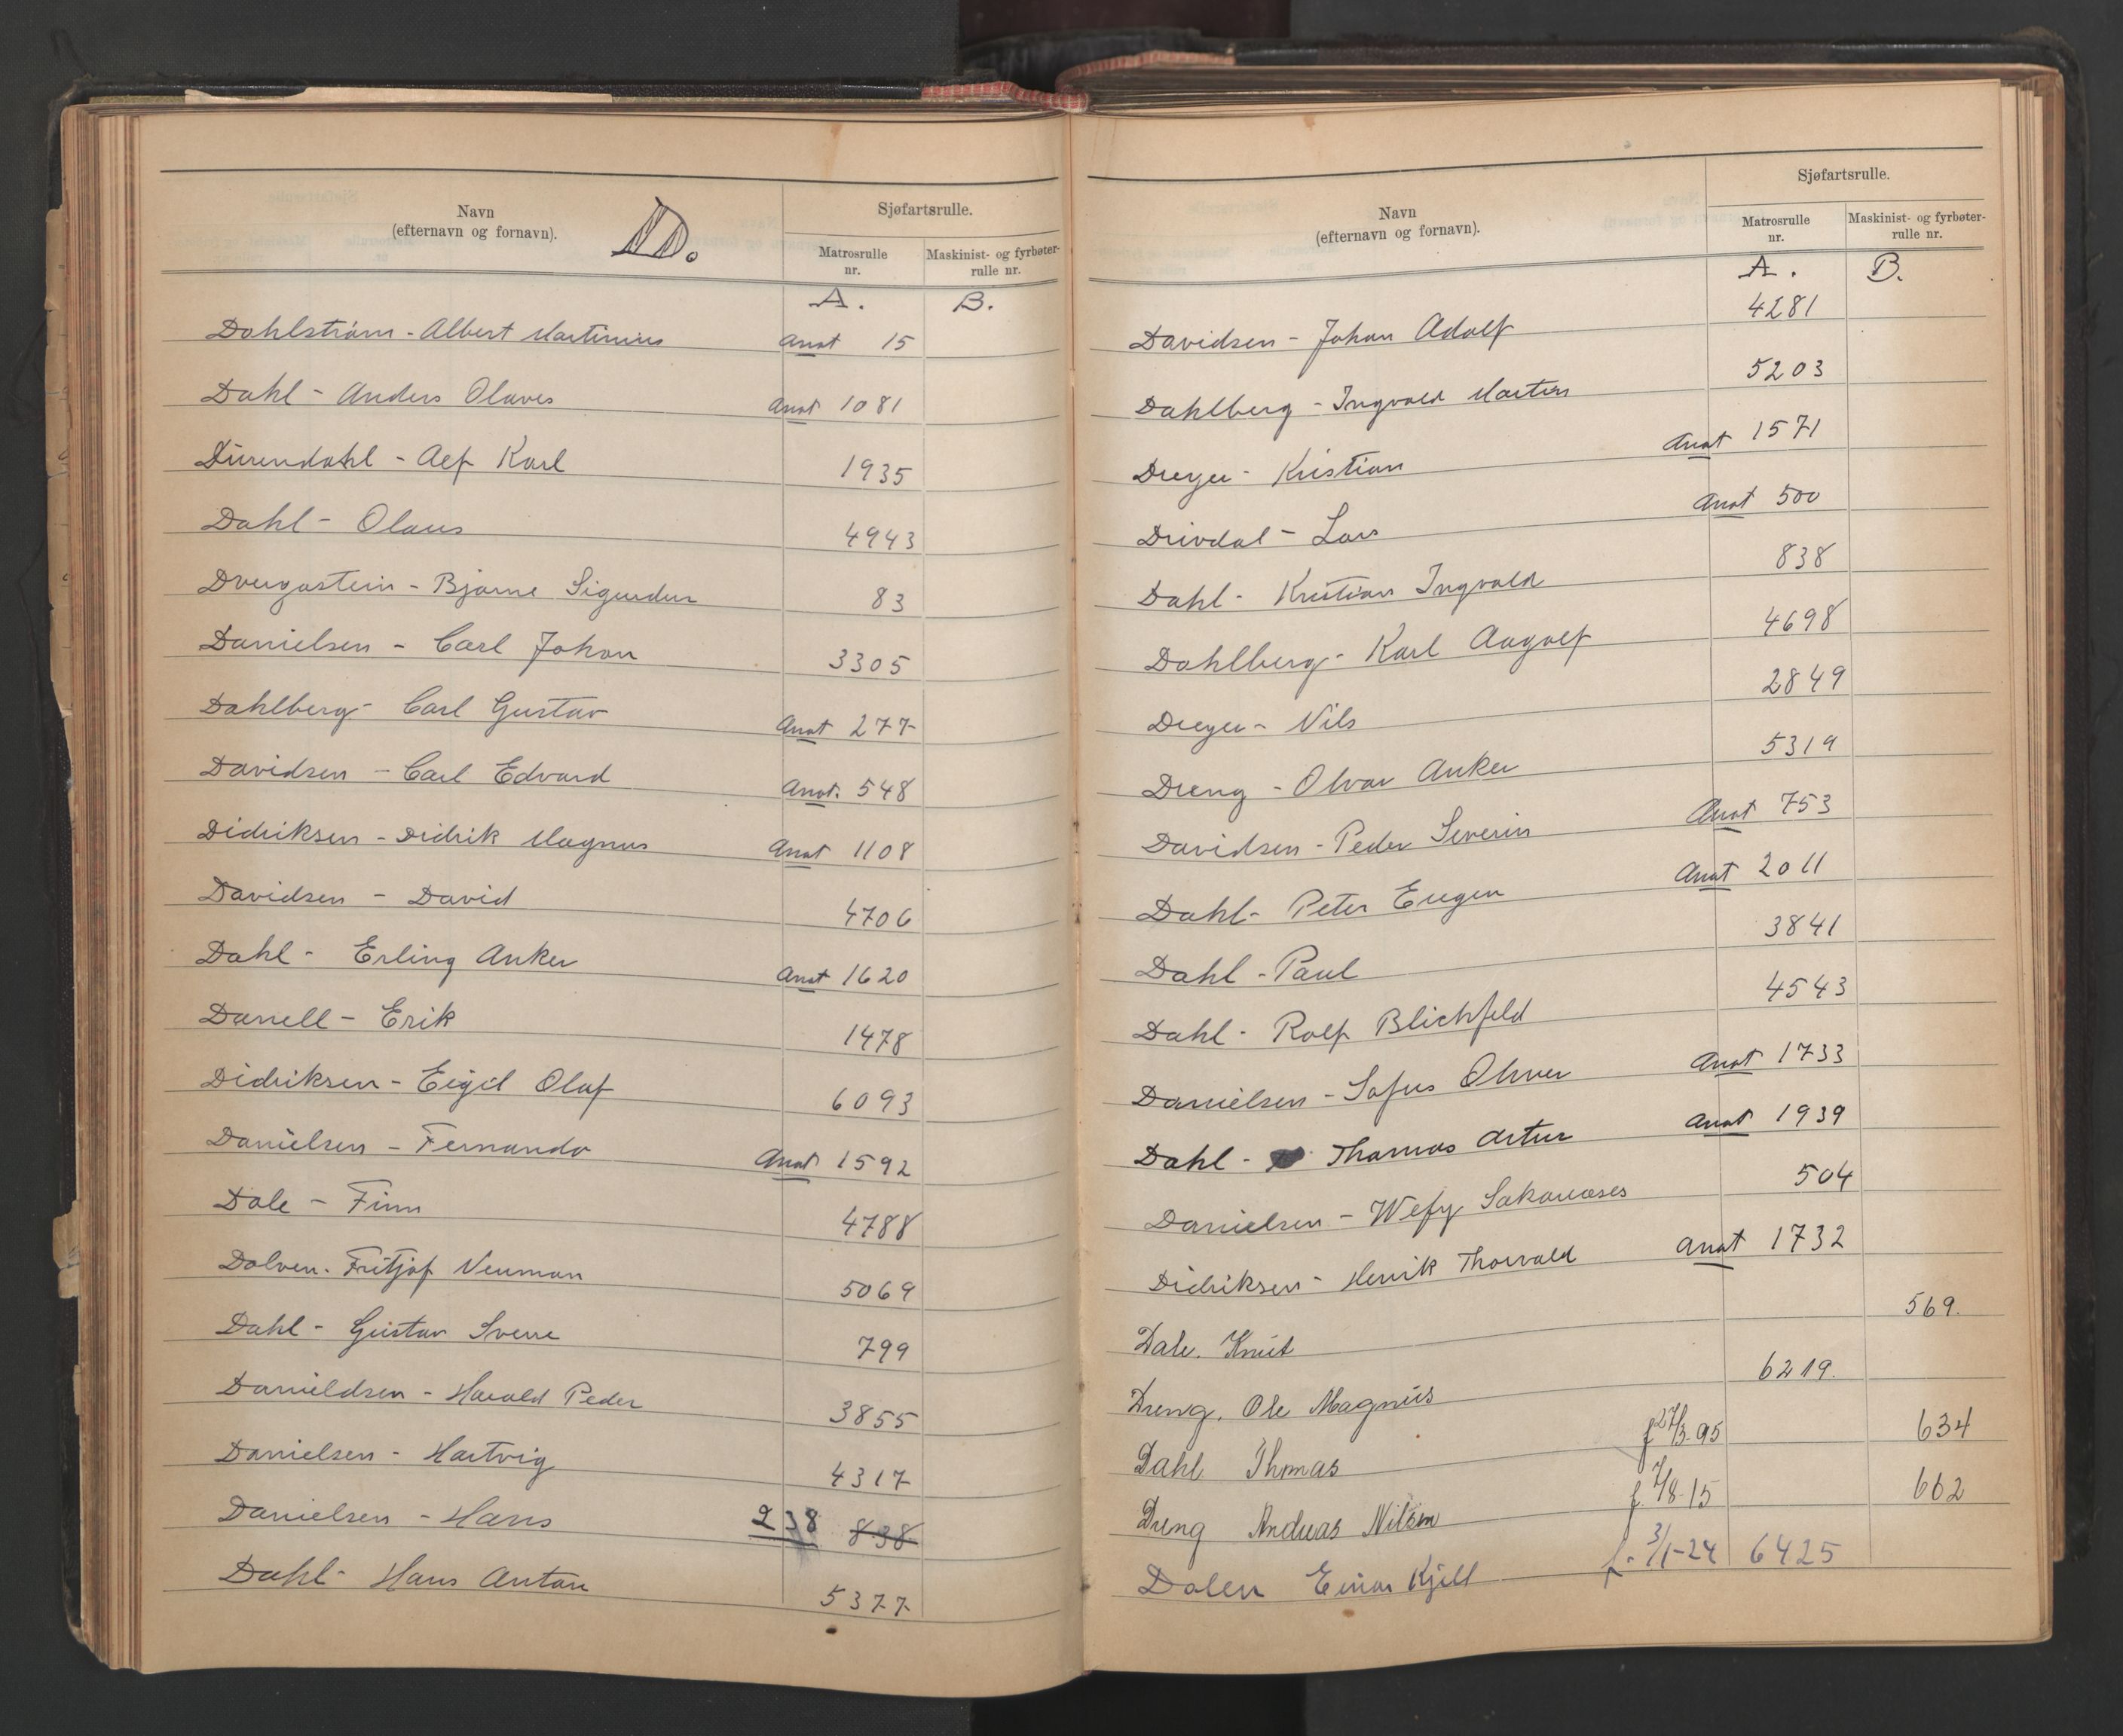 Navn
(efternavn og fornavn).
D.
Sjøfartsrulle.
Matrosrulle
nr.
Maskinist- og fyrbøter-
rulle nr.
A. B.
Dahlstrøm - Albert Martinius Anat 15
Dahl - Anders Olaves Anat 1081
Dürendahl - Alf Karl 1935
Dahl - Olaus 4943
Dvergastein - Bjarne Sigurdur 83
Danielsen - Carl Johan 3305
Dahlberg - Carl Gustav Anat 277
Davidsen - Carl Edvard Anat. 548
Didriksen - Didrik Magnus Anat 1108
Davidsen - David 4706
Dahl - Erling Anker Anat 1620
Danell - Erik 1478
Didriksen - Eigil Olaf 6093
Danielsen - Fernando Anat 1592
Dale - Finn 4788
Dalven - Fritjof Neuman 5069
Dahl - Gustav Sverre 799
Danieldsen - Harald Peder 3855
Danielsen - Hartvig 4317
Danielsen - Hans 238 838
Dahl - Hans Anton 5377
Navn
(efternavn og fornavn).
Sjøfartsrulle.
Matrosrulle
nr.
Maskinist- og fyrbøter-
rulle nr.
A. B.
Davidsen - Johan Adolf 4281
Dahlberg - Ingvald Martin 5203
Dreyer - Kristian Anat 1571
Drivdal - Lars Anat 500
Dahl - Kristian Ingvald 838
Dahlberg - Karl Aagolf 4698
Dreyer - Nils 2849
Dreng - Olvar Anker 5319
Davidsen - Peder Severin Anat 753
Dahl - Peter Eugen Anat 2011
Dahl - Paul 3841
Dahl - Rolf Blichfeld 4543
Danielsen - Sofus Oliver Anat 1733
Dahl - Thomas Artur Anat 1939
Danielsen - 504
Didriksen - Henrik Thorvald Anat 1732
Dale. Knut 569.
Dreng. Ole Magnus 6219.
Dahl Thomas f 27/3-95 634
Dreng Andreas Nilsen f. 7/8-15 662
Dalen Einar Kjell f. 3/1-24 6425